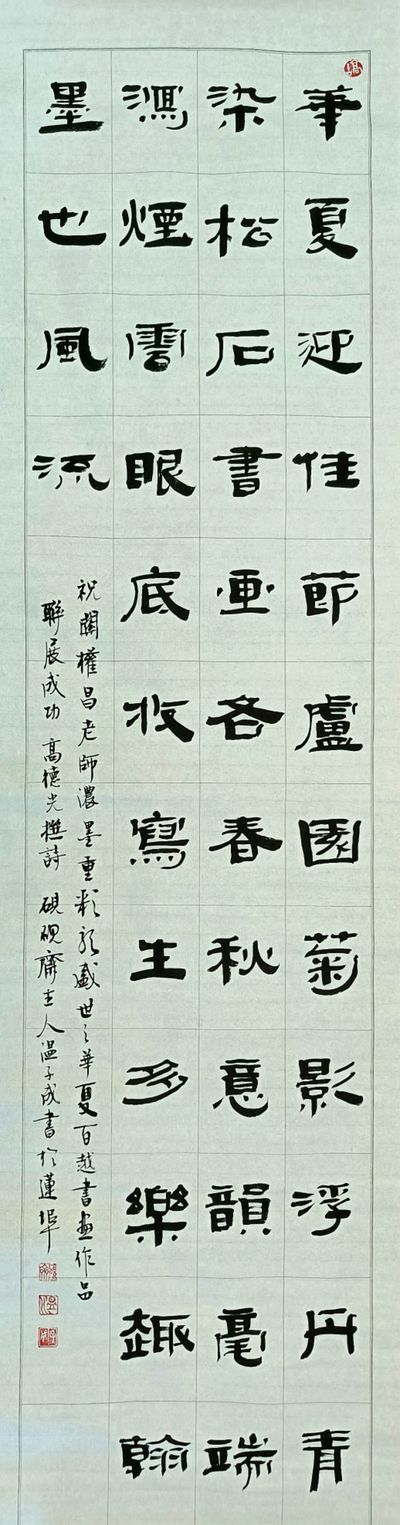 華夏迎佳節盧園菊影浮丹青
染松石書画各春秋意韻毫端
瀉煙雲眼底收寫生多樂趣翰
墨也風流
祝關權昌老師濃墨重彩頌盛世之華夏百越書畫作品
聯展成功 高德光撰詩 硯硯齋主人溫子成書於蓮埠